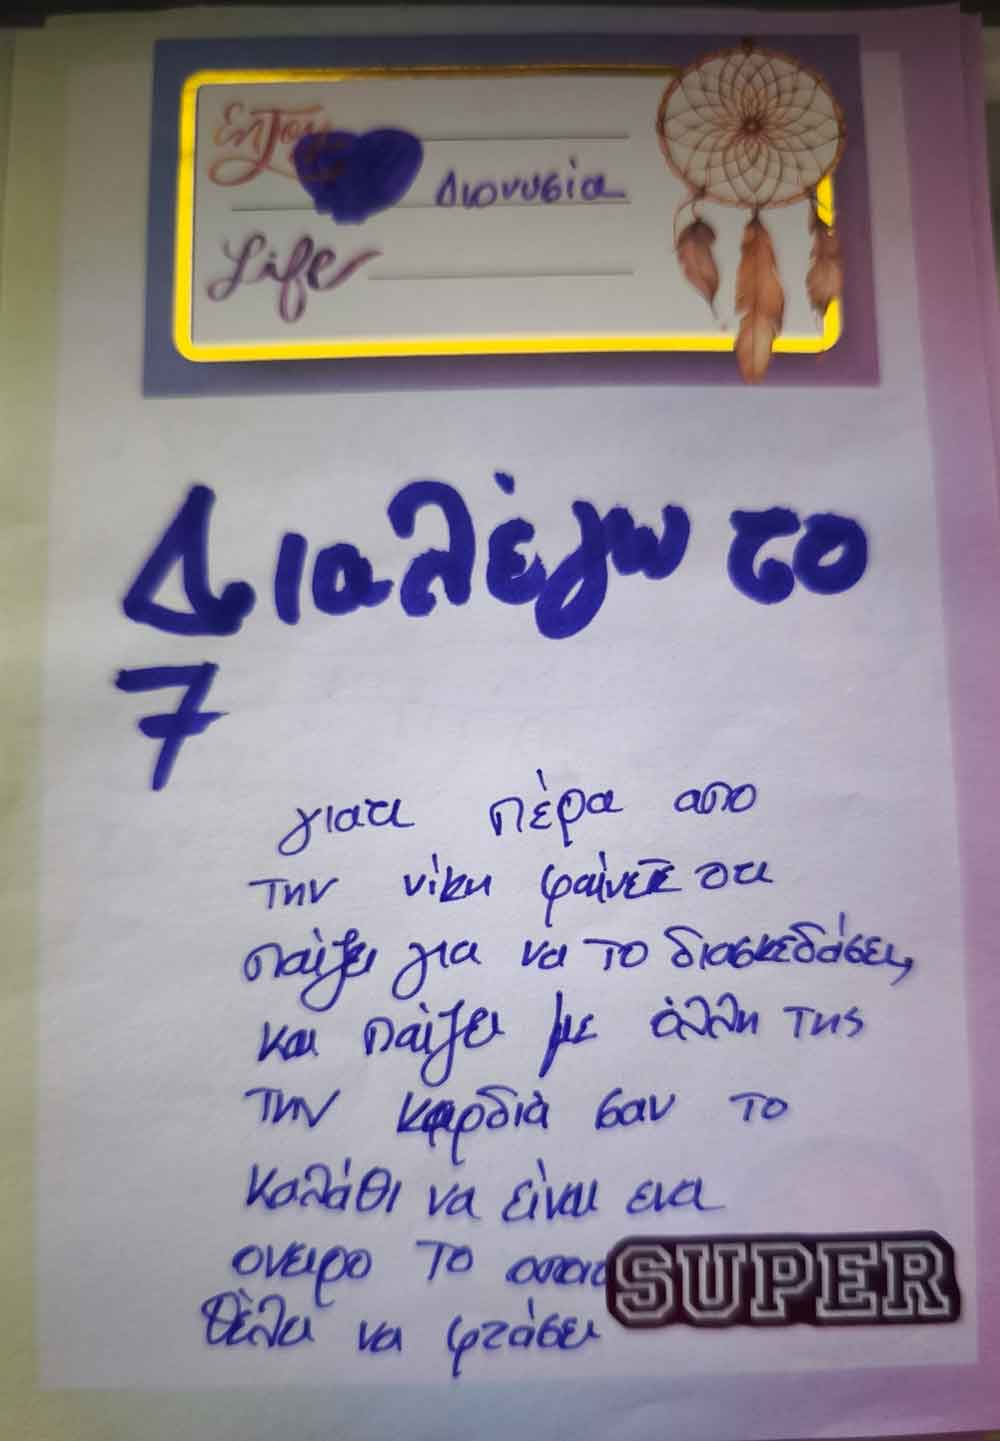 Enjoy
Διονυσία
Life
Διαλέγω το
7
γιατι πέρα απο
την νίκη φαίνετε οτι
παίζει για να το διασκεδάσει,
και παίζει με άλλη της
την καρδιά σαν το
καλάθι να είναι ενα
ονειρο το οποιο
SUPER
θέλει να φτάσει